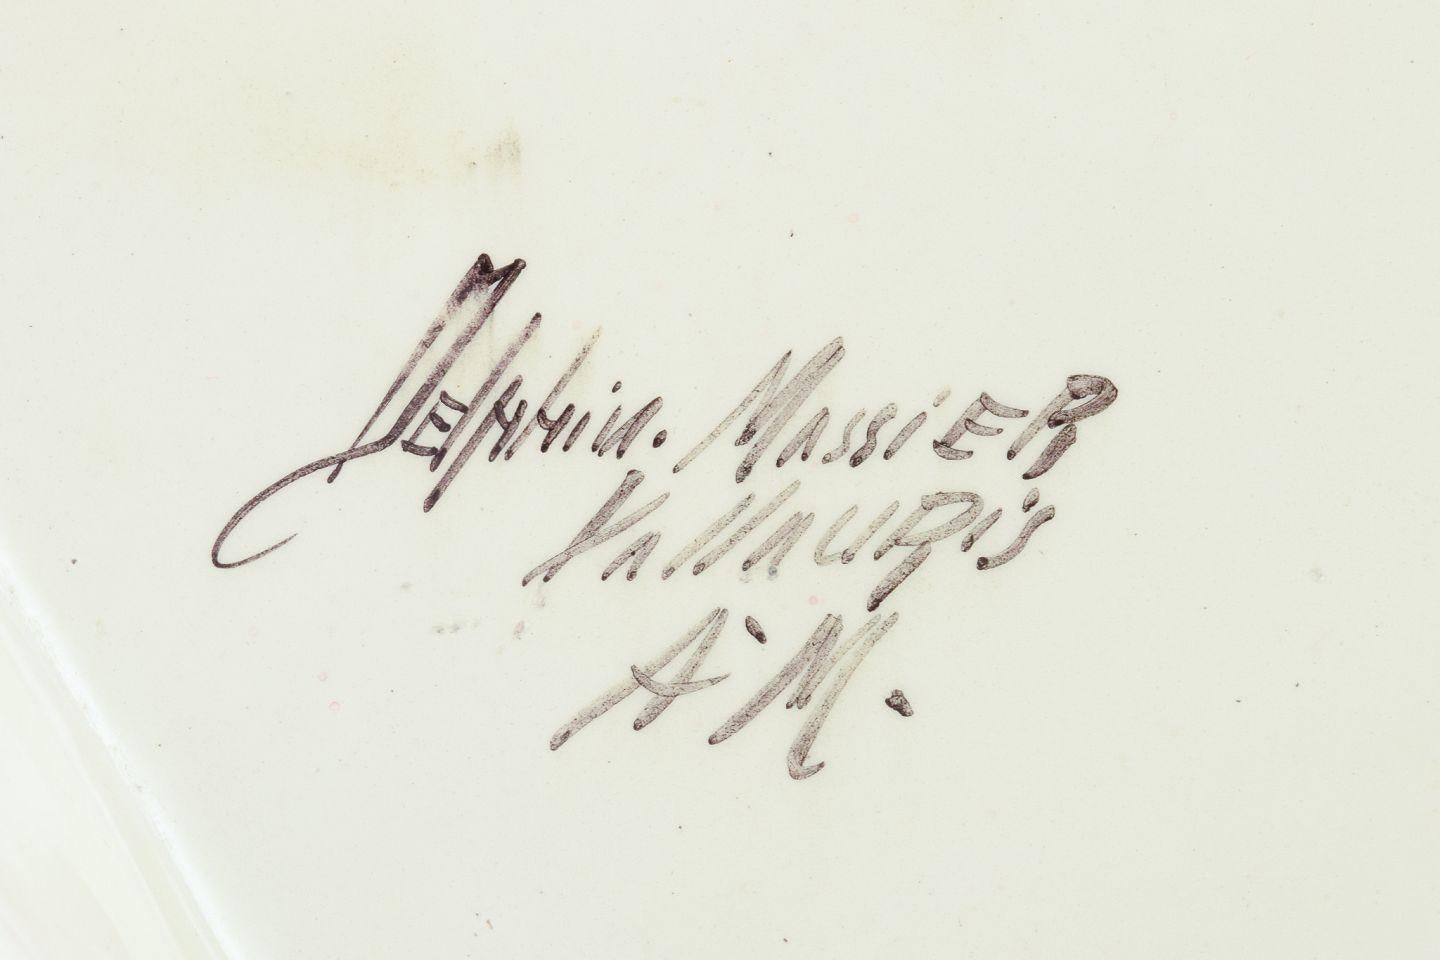 Delphin. MassiER
VallauRis
A.M.